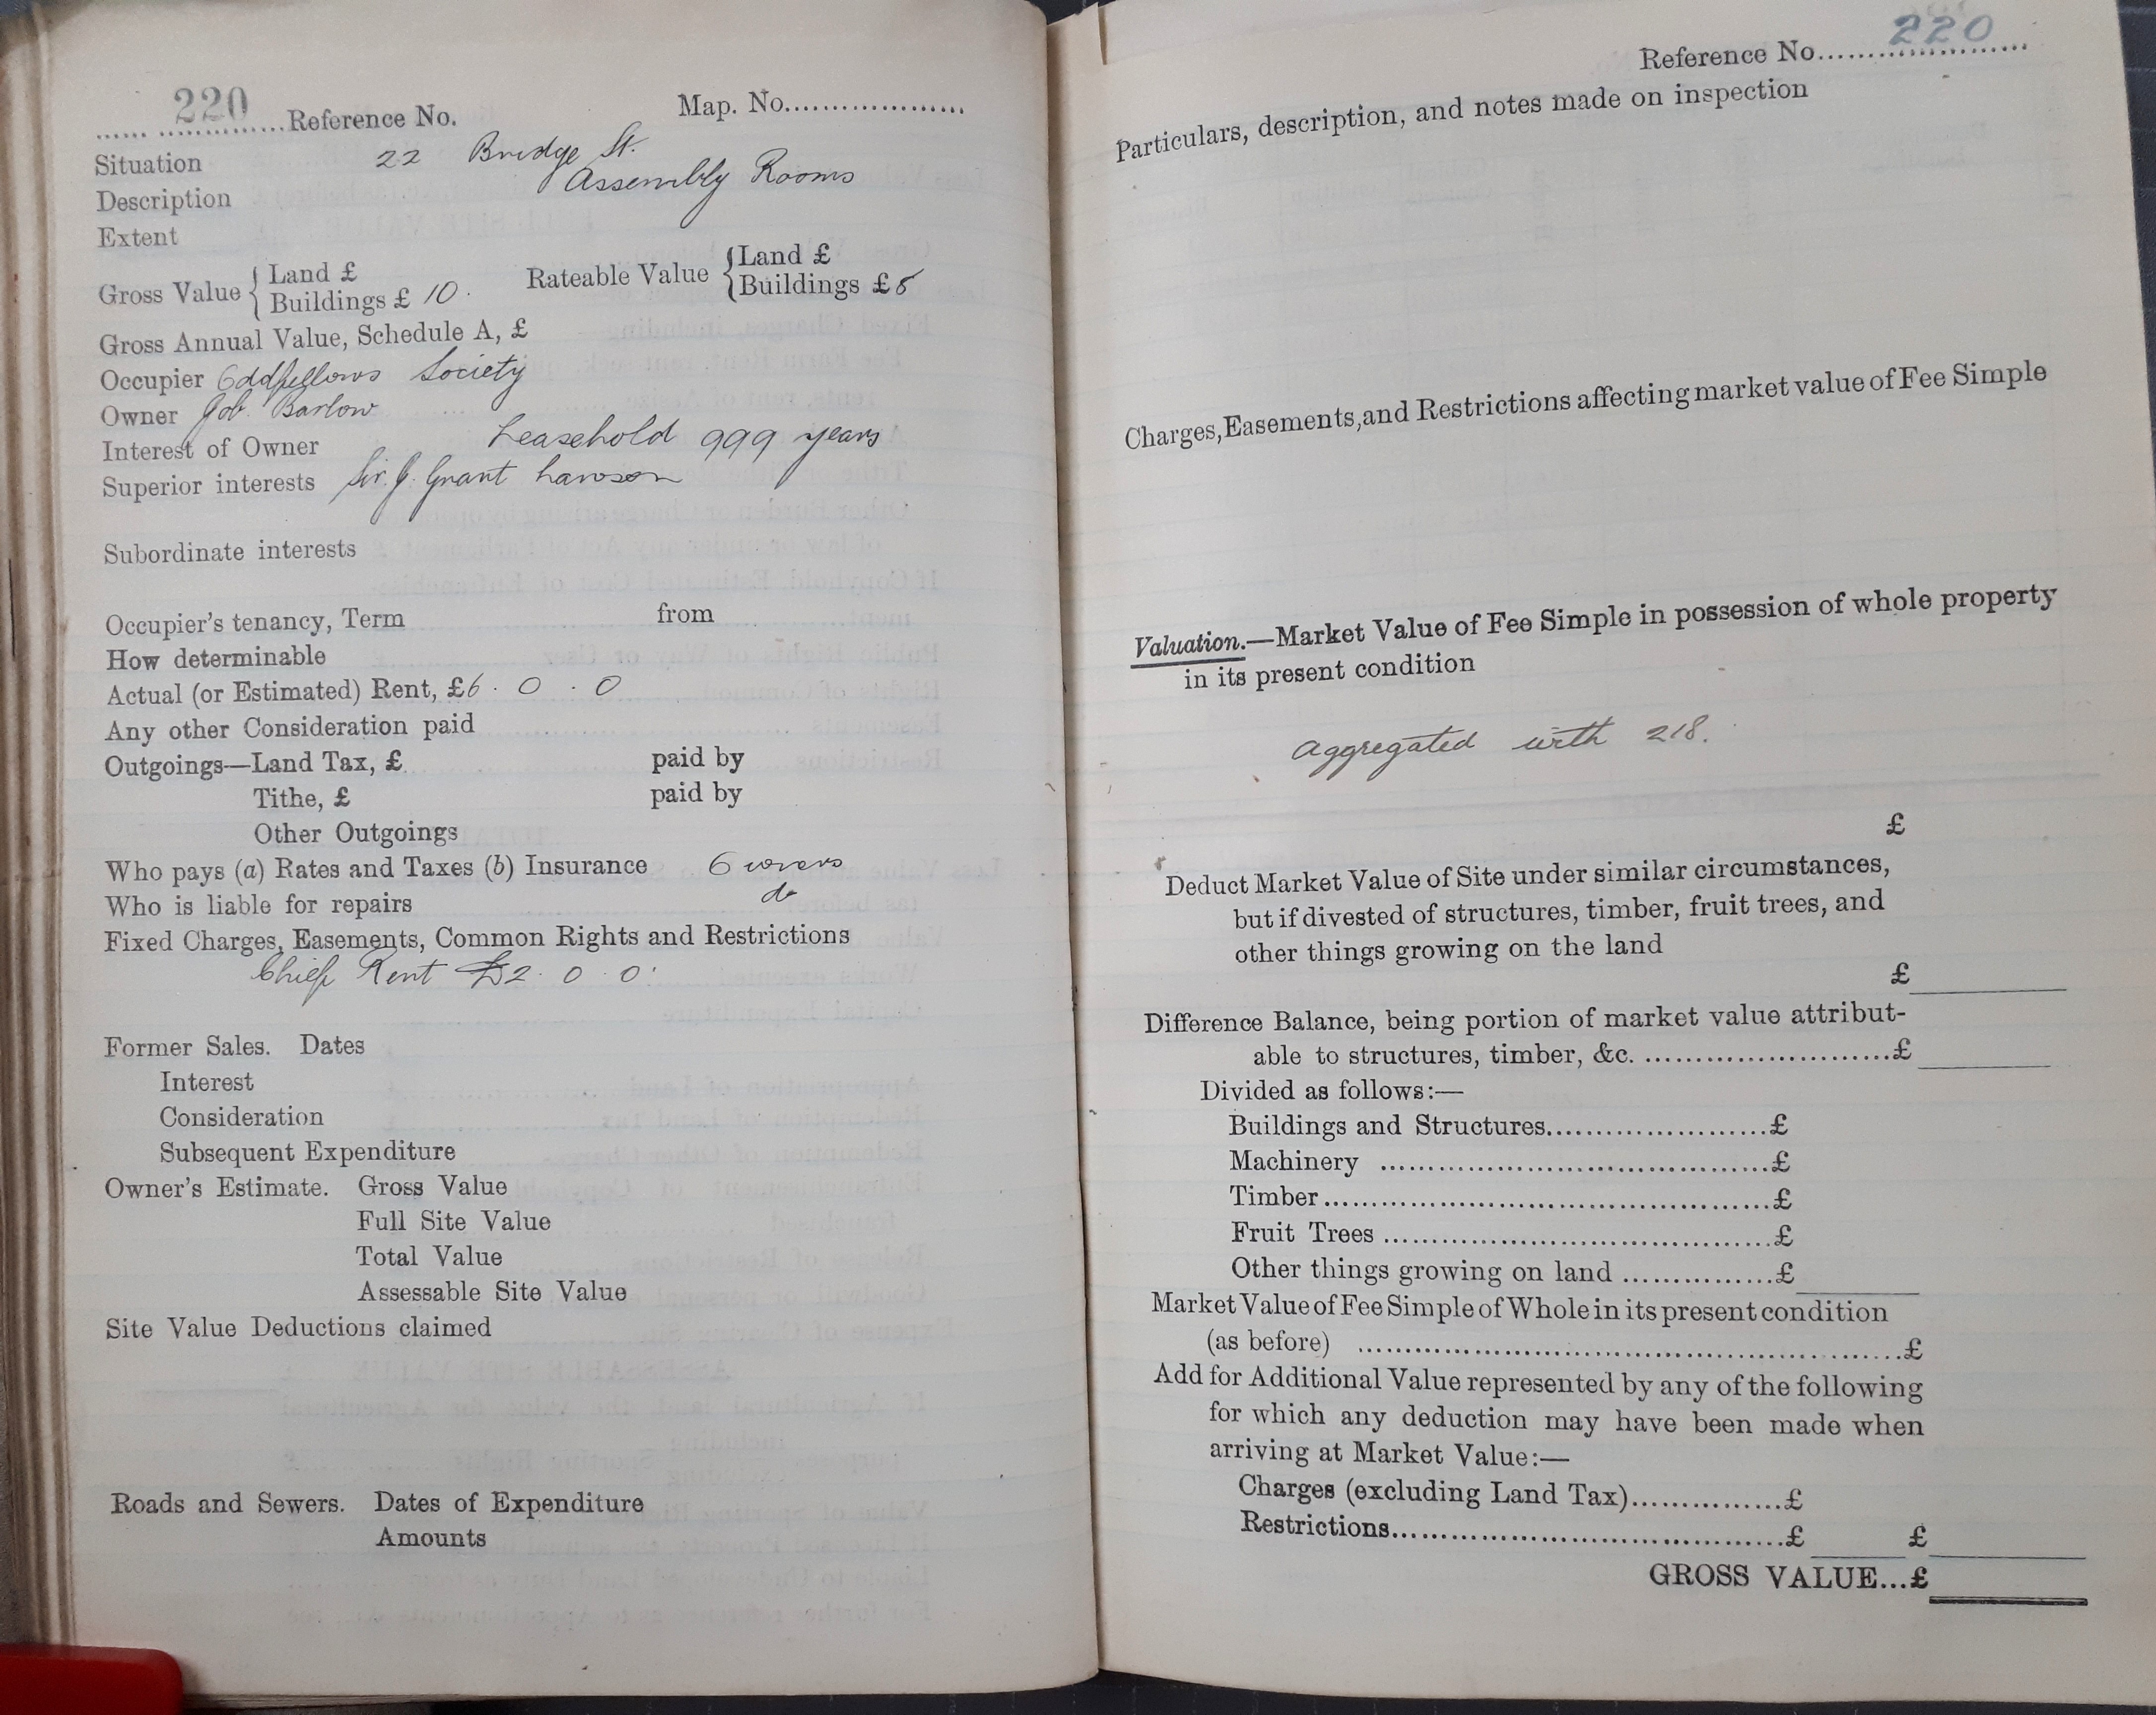 220 Reference No. Map. No.
Situation 22 Bridge St.
Description Assembly Rooms
Extent
Gross Value { Land £
Buildings £ 10. Rateable Value { Land £
Buildings £8
Gross Annual Value, Schedule A, £
Occupier Oddfellows Society
Owner Job. Barlow
Interest of Owner Leasehold 999 years
Superior interests Sir. J. Grant Lawson
Subordinate interests
Occupier's tenancy, Term from
How determinable
Actual (or Estimated) Rent, £6. 0. 0
Any other Consideration paid
Outgoings—Land Tax, £ paid by
Tithe, £ paid by
Other Outgoings
Who pays (a) Rates and Taxes (b) Insurance Owners
Who is liable for repairs do
Fixed Charges, Easements, Common Rights and Restrictions
Chief Rent £2. 0. 0.
Former Sales. Dates
Interest
Consideration
Subsequent Expenditure
Owner's Estimate. Gross Value
Full Site Value
Total Value
Assessable Site Value
Site Value Deductions claimed
Roads and Sewers. Dates of Expenditure
Amounts
Reference No. 220
Particulars, description, and notes made on inspection
Charges, Easements, and Restrictions affecting market value of Fee Simple
Valuation.—Market Value of Fee Simple in possession of whole property
in its present condition
Aggregated with 218.
£
Deduct Market Value of Site under similar circumstances,
but if divested of structures, timber, fruit trees, and
other things growing on the land
£
Difference Balance, being portion of market value attribut-
able to structures, timber, &c. £
Divided as follows:—
Buildings and Structures £
Machinery £
Timber £
Fruit Trees £
Other things growing on land £
Market Value of Fee Simple of Whole in its present condition
(as before) £
Add for Additional Value represented by any of the following
for which any deduction may have been made when
arriving at Market Value:—
Charges (excluding Land Tax) £
Restrictions £ £
GROSS VALUE...£